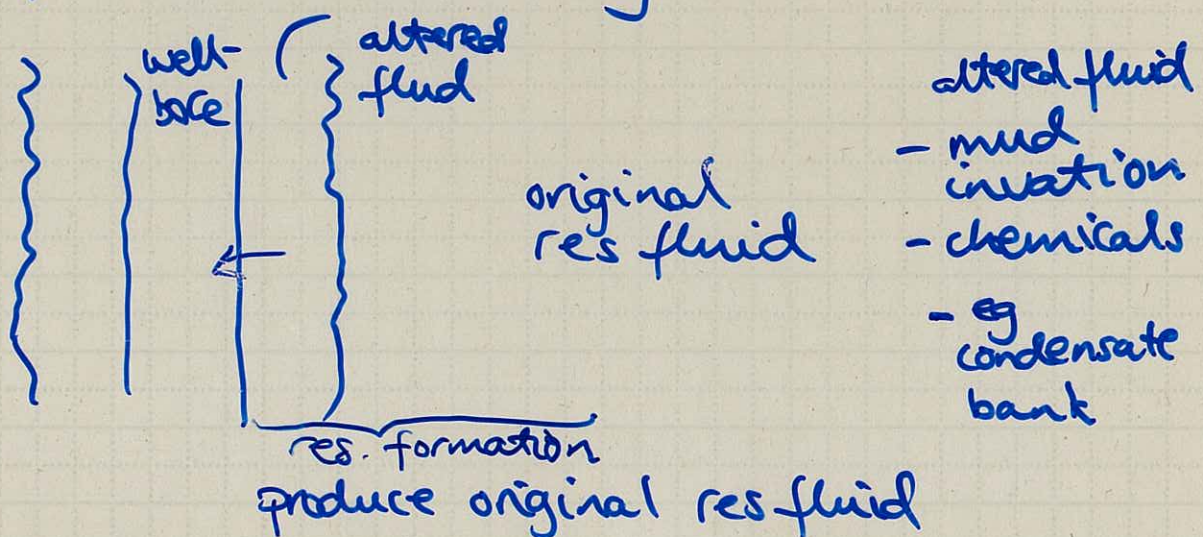 well-
bore
altered
flud
original
res fluid
altered fluid
- mud
invation
- chemicals
- eg
condensate
bank
res. formation
produce original res fluid